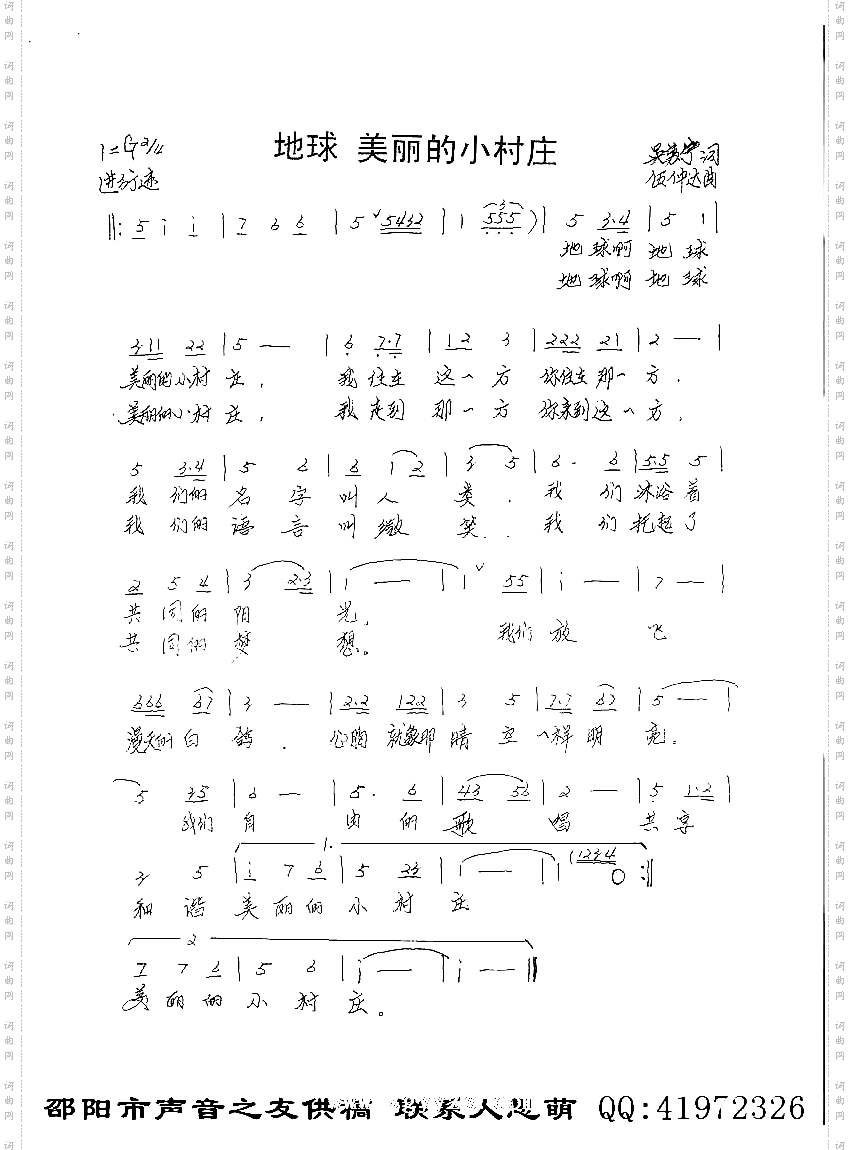 地球 美丽的小村庄
1=G 2/4
进行速
吴
词
伍仲达曲
‖: 5 i i | 7 6 6 | 5 ˅ 5432 | 1 555 ) | 5 3·4 | 5 1 |
地球啊 地球
地球啊 地球
3·11 22 | 5 — | 6 7·7 | 12 3 | 222 21 | 2 — |
美丽的小村庄, 我住在 这一方 你住在那一方.
美丽的小村庄, 我走到 那一方 你来到这一方.
5 3·4 | 5 6 | 6 1 2 | 3 5 | 6· 6 | 5·5 5 |
我们的名字叫人类. 我们沐浴着
我们的语言叫微笑. 我们托起了
2 5 4 | 3 2·3 | 1 — | 1 ˅ 55 | i — | 7 — |
共同的阳光, 我们放飞
共同的梦想。
666 67 | 3 — | 2·2 122 | 3 5 | 7·7 67 | 5 — |
漫天的白鸽. 心胸就象那晴空一样明亮.
5 35 | 6 — | 5· 6 | 43 56 | 2 — | 5 1·2 |
我们自由的歌唱 共享
1.
3 5 | i 7 6 | 5 23 | 1 — | 1 (1234 0 :‖
和谐美丽的小村庄
2
7 7 6 | 5 6 | i — | i — — ‖
美丽的小村庄。
邵阳市声音之友供稿 联系人思萌 QQ:41972326
词曲网